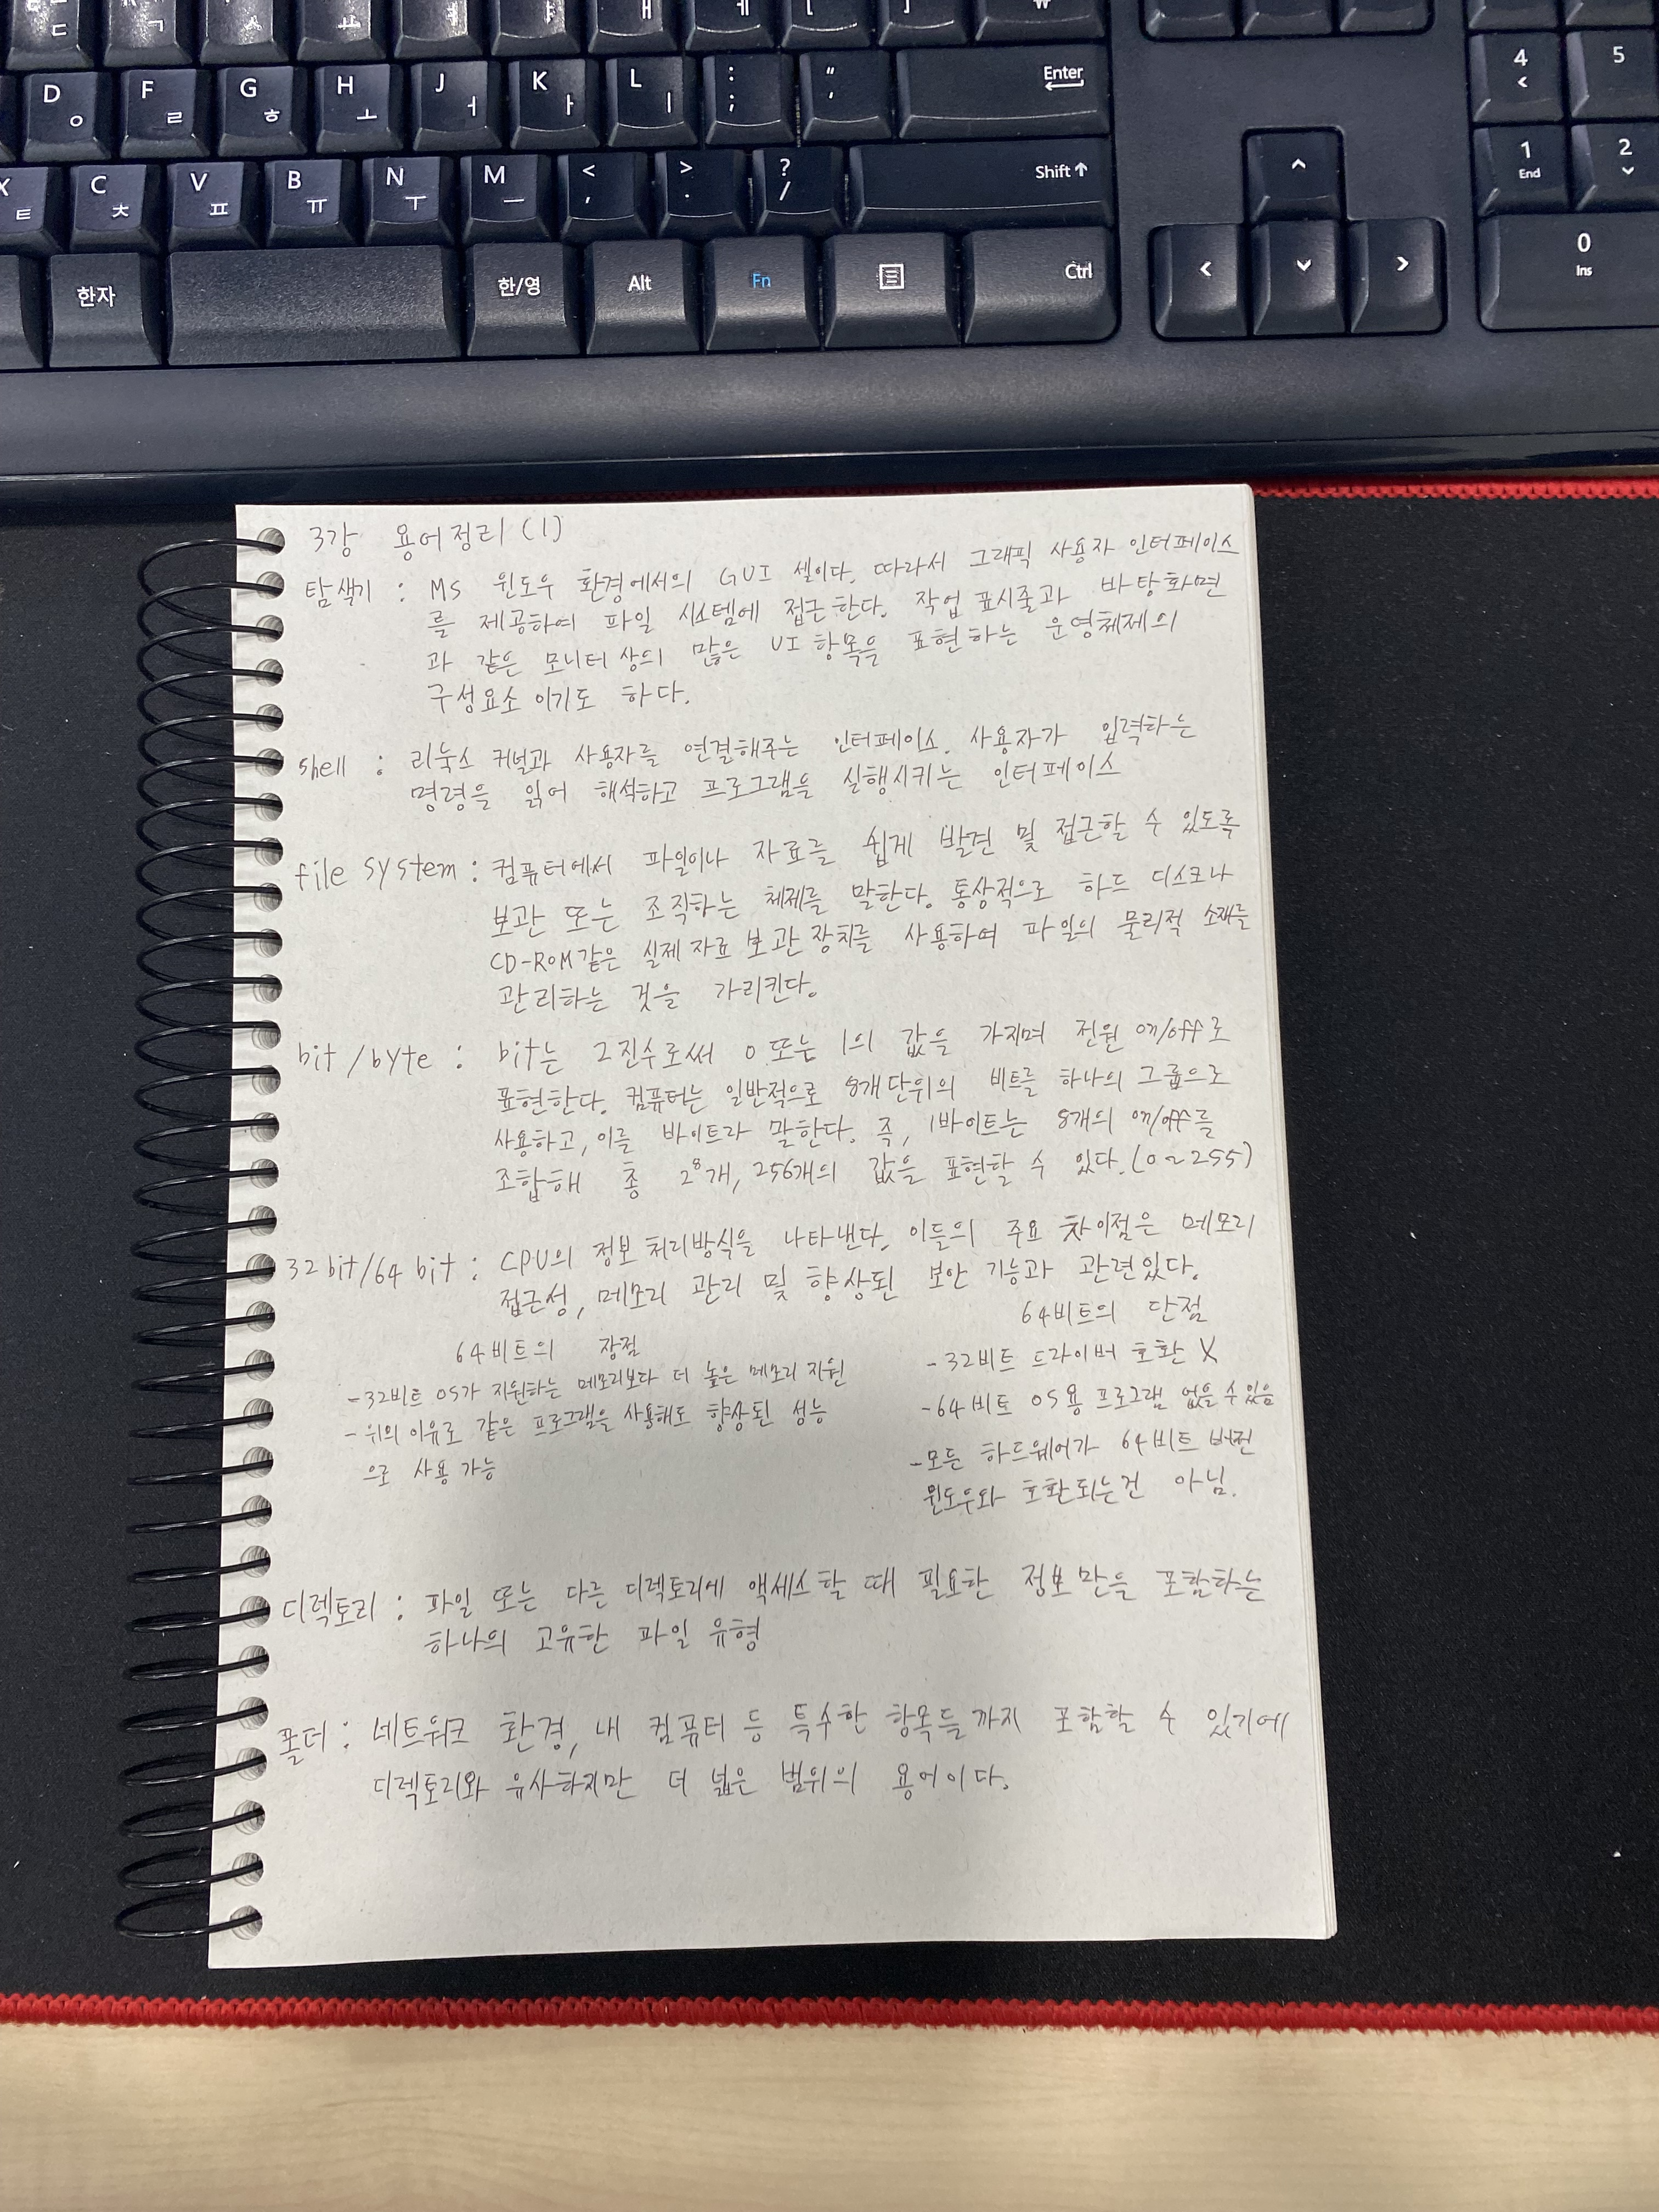 D ㅇ F ㄹ G ㅎ H ㅗ J ㅓ K ㅏ L ㅣ : ; " ' Enter
4 5
X ㅌ C ㅊ V ㅍ B ㅠ N ㅜ M ㅡ < , > . ? / Shift
1 End 2
한자 한/영 Alt Fn Ctrl
0 Ins
3강 용어정리(1)
탐색기 : MS 윈도우 환경에서의 GUI 셸이다. 따라서 그래픽 사용자 인터페이스
를 제공하여 파일 시스템에 접근한다. 작업 표시줄과 바탕화면
과 같은 모니터 상의 많은 UI 항목을 표현하는 운영체제의
구성요소이기도 하다.
shell : 리눅스 커널과 사용자를 연결해주는 인터페이스. 사용자가 입력하는
명령을 읽어 해석하고 프로그램을 실행시키는 인터페이스
file system : 컴퓨터에서 파일이나 자료를 쉽게 발견 및 접근할 수 있도록
보관 또는 조직하는 체제를 말한다. 통상적으로 하드 디스크나
CD-ROM같은 실제 자료 보관 장치를 사용하여 파일의 물리적 소재를
관리하는 것을 가리킨다.
bit/byte : bit는 2진수로써 0 또는 1의 값을 가지며 전원 on/off로
표현한다. 컴퓨터는 일반적으로 8개 단위의 비트를 하나의 그룹으로
사용하고, 이를 바이트라 말한다. 즉, 1바이트는 8개의 on/off를
조합해 총 2⁸개, 256개의 값을 표현할 수 있다.(0~255)
32bit/64bit : CPU의 정보 처리방식을 나타낸다. 이들의 주요 차이점은 메모리
접근성, 메모리 관리 및 향상된 보안 기능과 관련있다.
64비트의 장점
-32비트 OS가 지원하는 메모리보다 더 높은 메모리 지원
-위의 이유로 같은 프로그램을 사용해도 향상된 성능
으로 사용 가능
64비트의 단점
-32비트 드라이버 호환 X
-64비트 OS용 프로그램 없을 수 있음
-모든 하드웨어가 64비트 버전
윈도우와 호환되는건 아님.
디렉토리 : 파일 또는 다른 디렉토리에 액세스할 때 필요한 정보만을 포함하는
하나의 고유한 파일 유형
폴더 : 네트워크 환경, 내 컴퓨터 등 특수한 항목들까지 포함할 수 있기에
디렉토리와 유사하지만 더 넓은 범위의 용어이다.